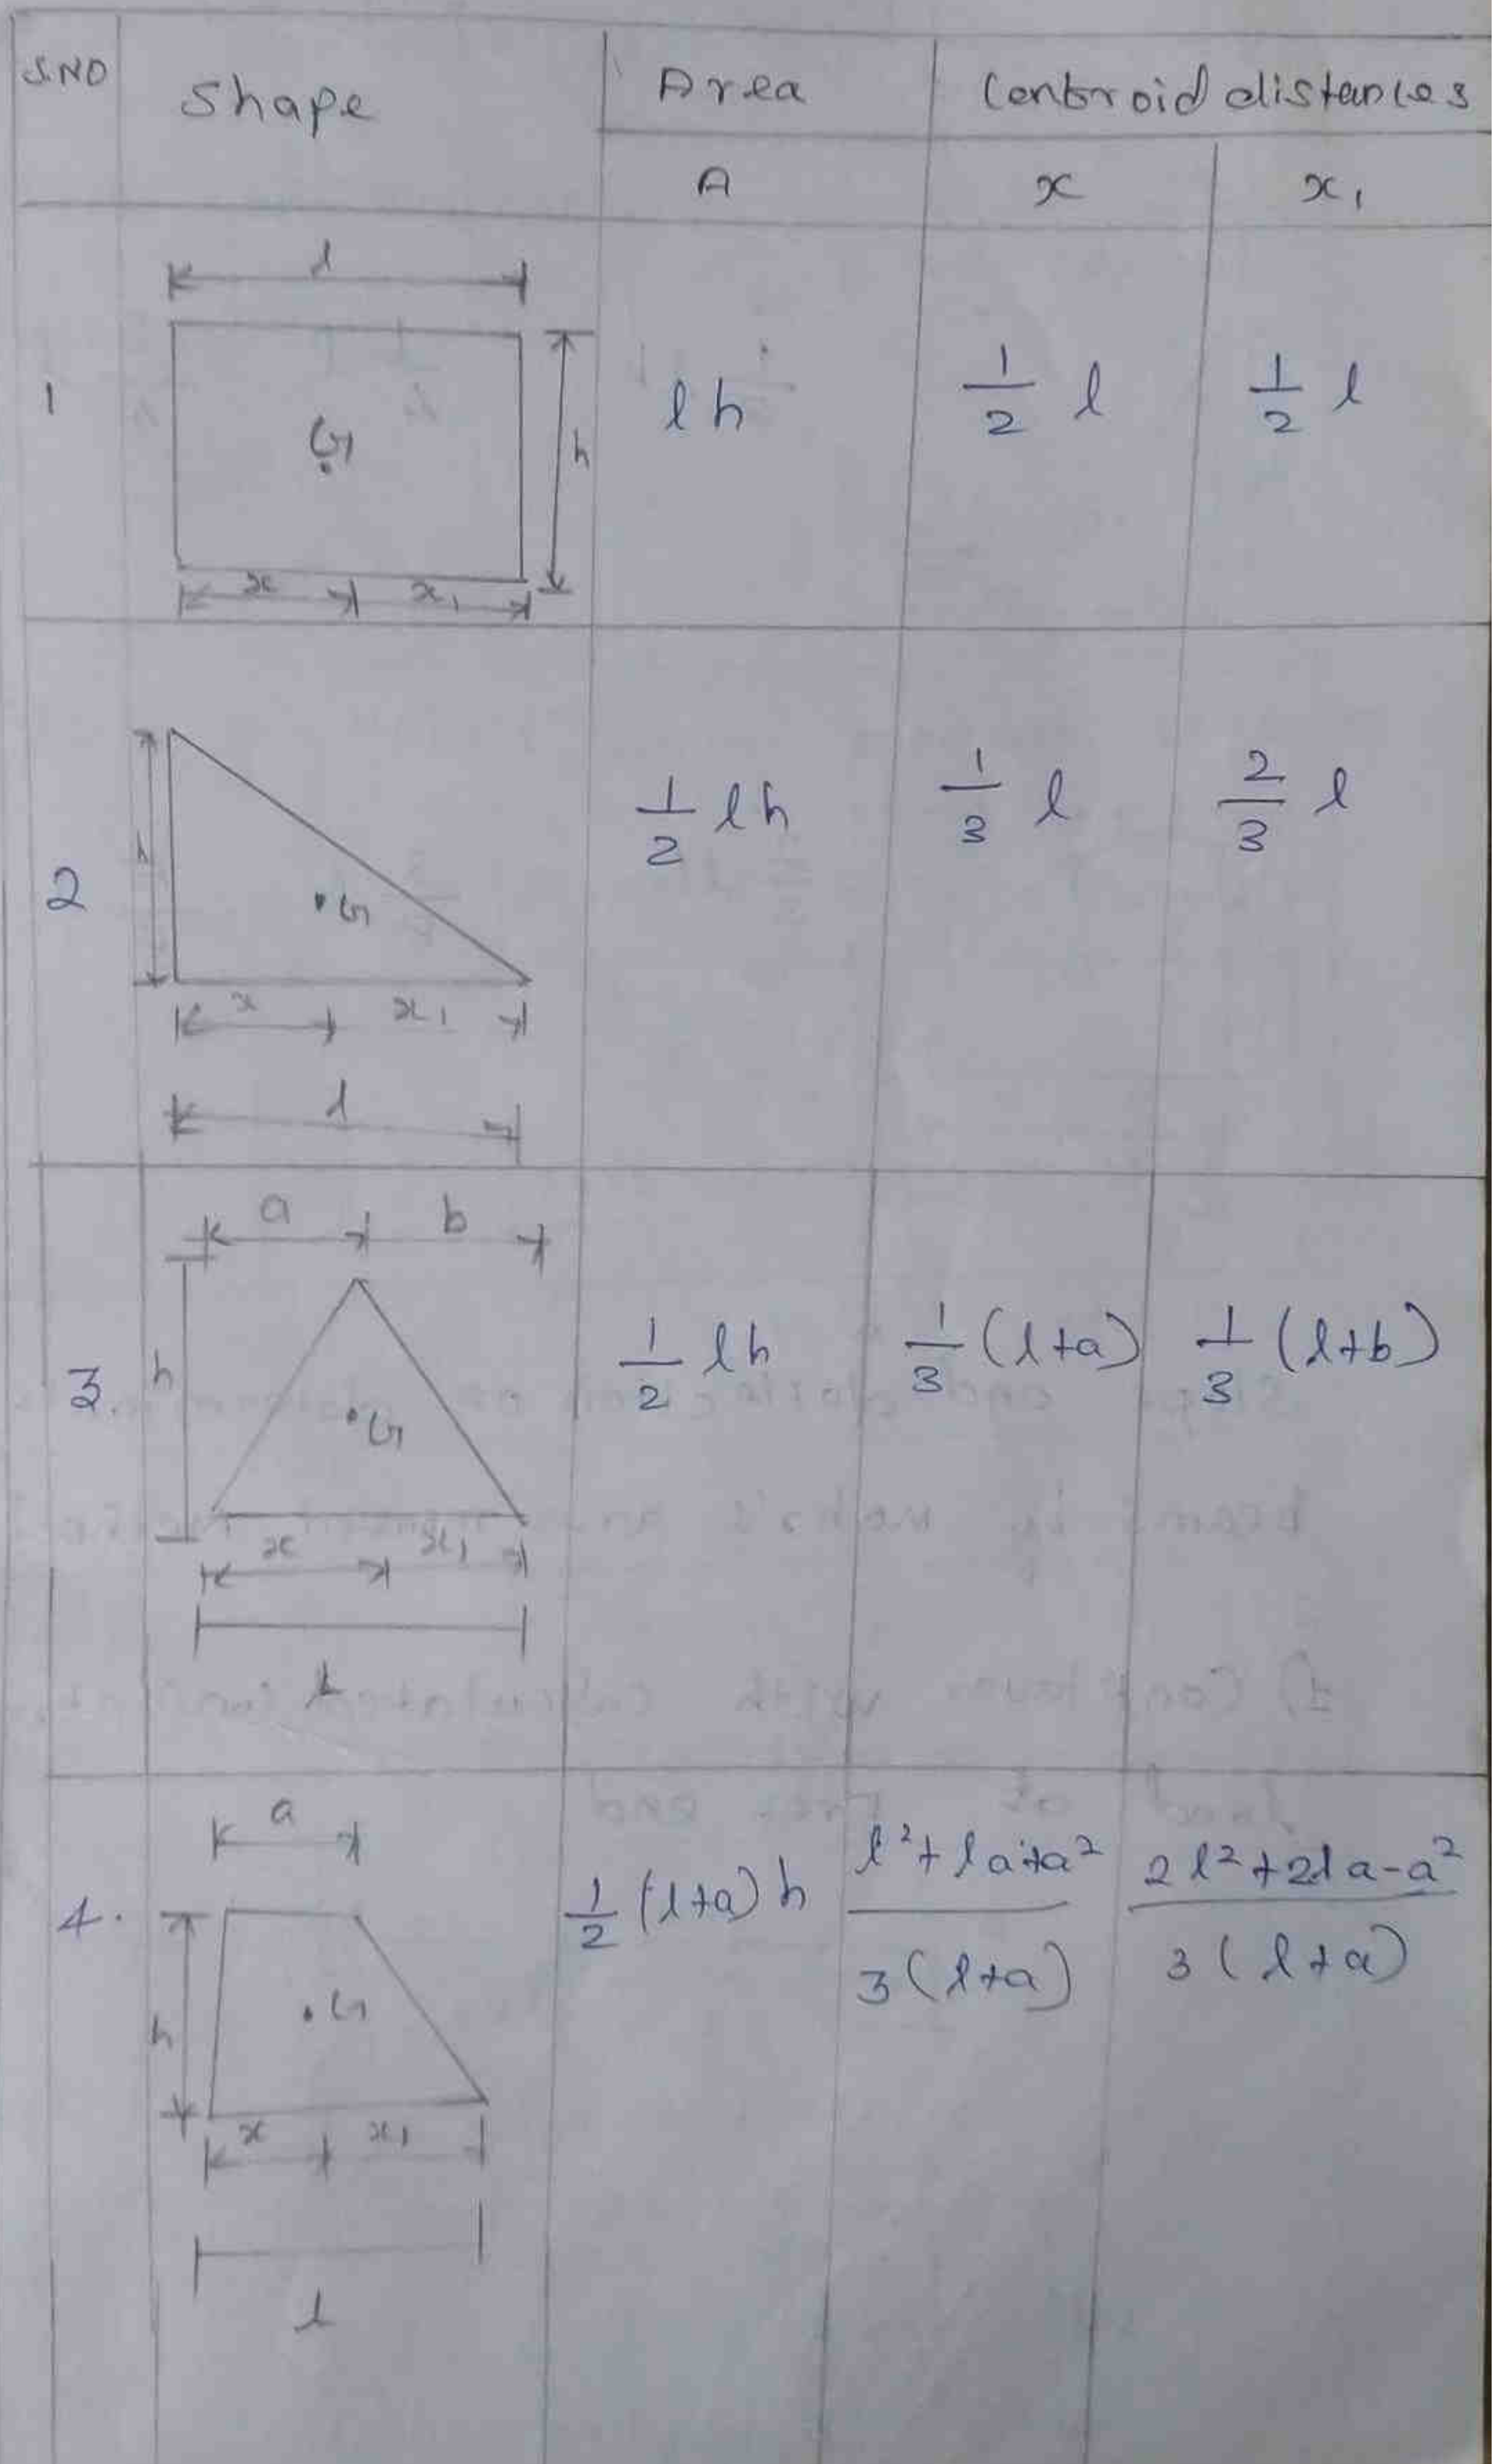 S.NO Shape Area Centroid distances
A x x₁
1 l h x x₁ G lh 1/2 l 1/2 l
2 h G x x₁ l 1/2 lh 1/3 l 2/3 l
3. a b h G x x₁ l 1/2 lh 1/3 (l+a) 1/3 (l+b)
4. a h G x x₁ l 1/2 (l+a) h l²+la+a² / 3(l+a) 2l²+2la-a² / 3(l+a)